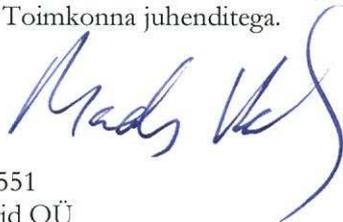 Toimkonna juhenditega.
551
id OÜ